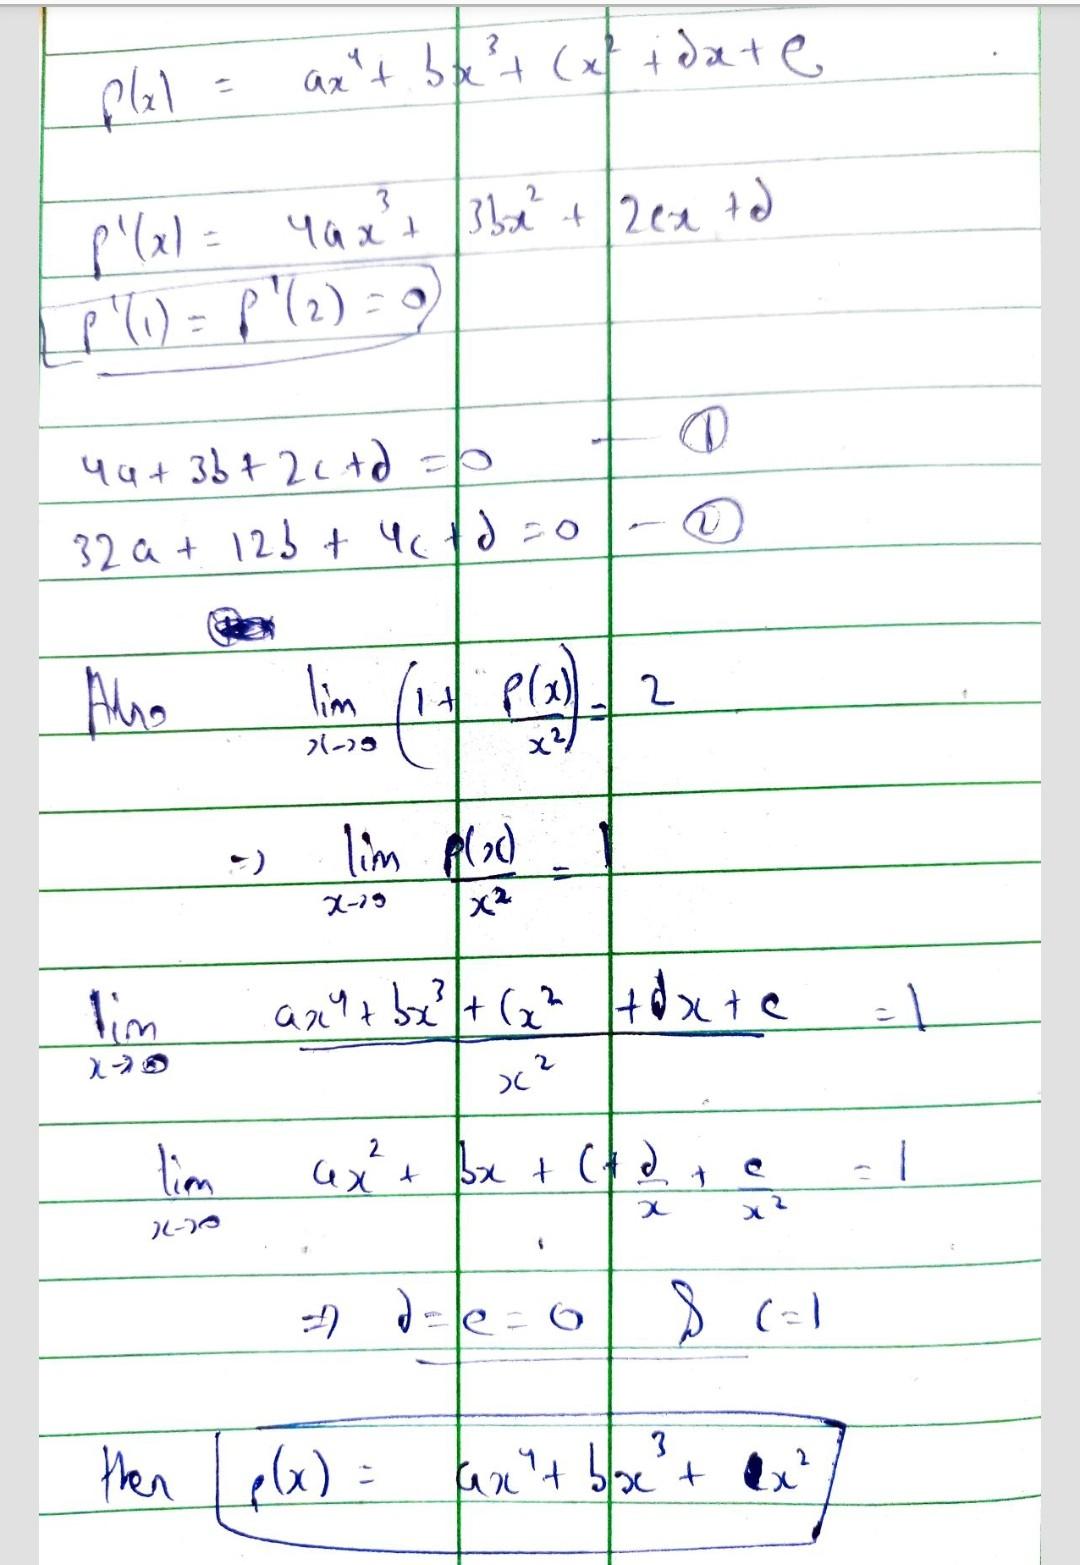 p(x) = ax⁴ + bx³ + cx² + dx + e
p'(x) = 4ax³ + 3bx² + 2cx + d
p'(1) = p'(2) = 0
4a + 3b + 2c + d = 0 — ①
32a + 12b + 4c + d = 0 — ②
Also lim x→0 (1 + p(x)/x²) = 2
⇒ lim x→0 p(x)/x² = 1
lim x→0 (ax⁴ + bx³ + cx² + dx + e)/x² = 1
lim x→0 ax² + bx + c + d/x + e/x² = 1
⇒ d = e = 0 & c = 1
then p(x) = ax⁴ + bx³ + x²